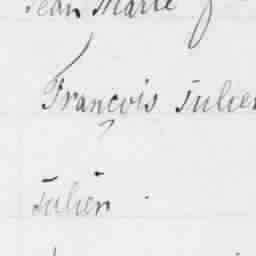 Jean Marie
François Julien
Julien